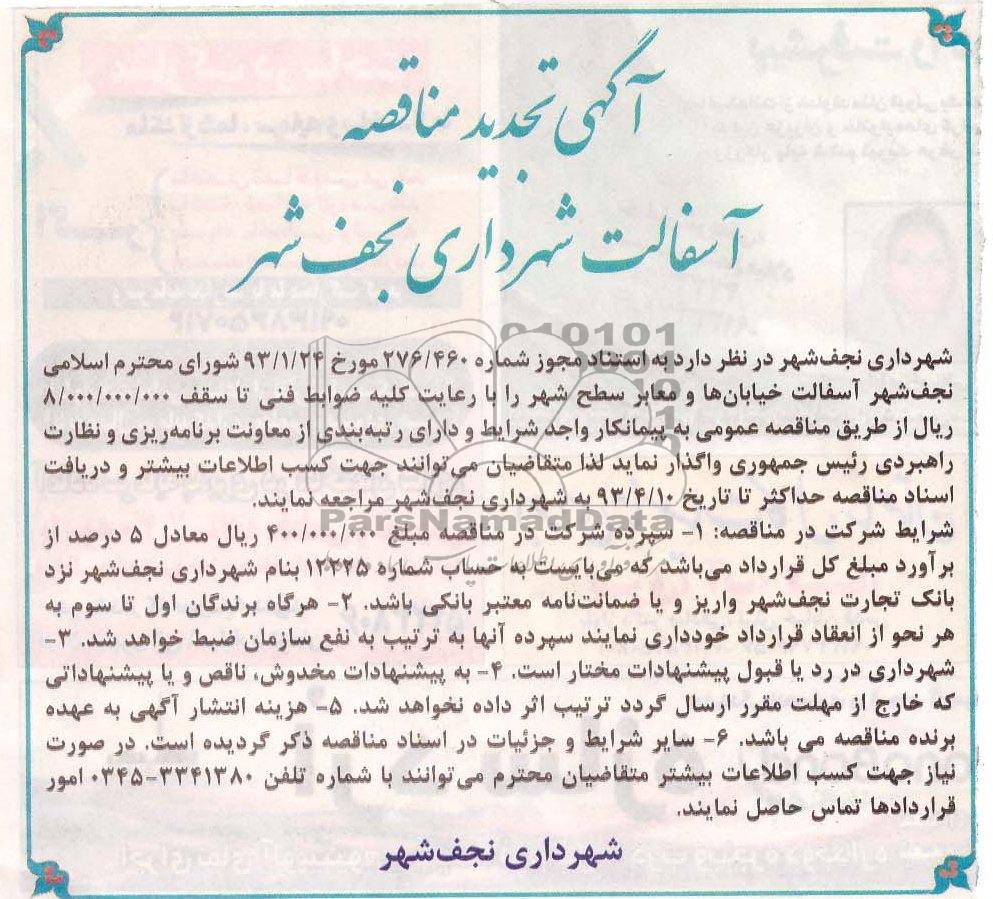 آگهی تجدید مناقصه
آسفالت شهرداری نجف‌شهر
شهرداری نجف‌شهر در نظر دارد به استناد مجوز شماره ۲۷۶/۴۶۰ مورخ ۹۳/۱/۲۴ شورای محترم اسلامی
نجف‌شهر آسفالت خیابان‌ها و معابر سطح شهر را با رعایت کلیه ضوابط فنی تا سقف ۸/۰۰۰/۰۰۰/۰۰۰
ریال از طریق مناقصه عمومی به پیمانکار واجد شرایط و دارای رتبه‌بندی از معاونت برنامه‌ریزی و نظارت
راهبردی رئیس جمهوری واگذار نماید لذا متقاضیان می‌توانند جهت کسب اطلاعات بیشتر و دریافت
اسناد مناقصه حداکثر تا تاریخ ۹۳/۴/۱۰ به شهرداری نجف‌شهر مراجعه نمایند.
ParsNamadData
شرایط شرکت در مناقصه: ۱- سپرده شرکت در مناقصه مبلغ ۴۰۰/۰۰۰/۰۰۰ ریال معادل ۵ درصد از
برآورد مبلغ کل قرارداد می‌باشد که می‌بایست به حساب شماره ۱۲۲۲۵ بنام شهرداری نجف‌شهر نزد
بانک تجارت نجف‌شهر واریز و یا ضمانت‌نامه معتبر بانکی باشد. ۲- هرگاه برندگان اول تا سوم به
هر نحو از انعقاد قرارداد خودداری نمایند سپرده آنها به ترتیب به نفع سازمان ضبط خواهد شد. ۳-
شهرداری در رد یا قبول پیشنهادات مختار است. ۴- به پیشنهادات مخدوش، ناقص و یا پیشنهاداتی
که خارج از مهلت مقرر ارسال گردد ترتیب اثر داده نخواهد شد. ۵- هزینه انتشار آگهی به عهده
برنده مناقصه می باشد. ۶- سایر شرایط و جزئیات در اسناد مناقصه ذکر گردیده است. در صورت
نیاز جهت کسب اطلاعات بیشتر متقاضیان محترم می‌توانند با شماره تلفن ۳۳۴۱۳۸۰-۰۳۴۵ امور
قراردادها تماس حاصل نمایند.
شهرداری نجف‌شهر